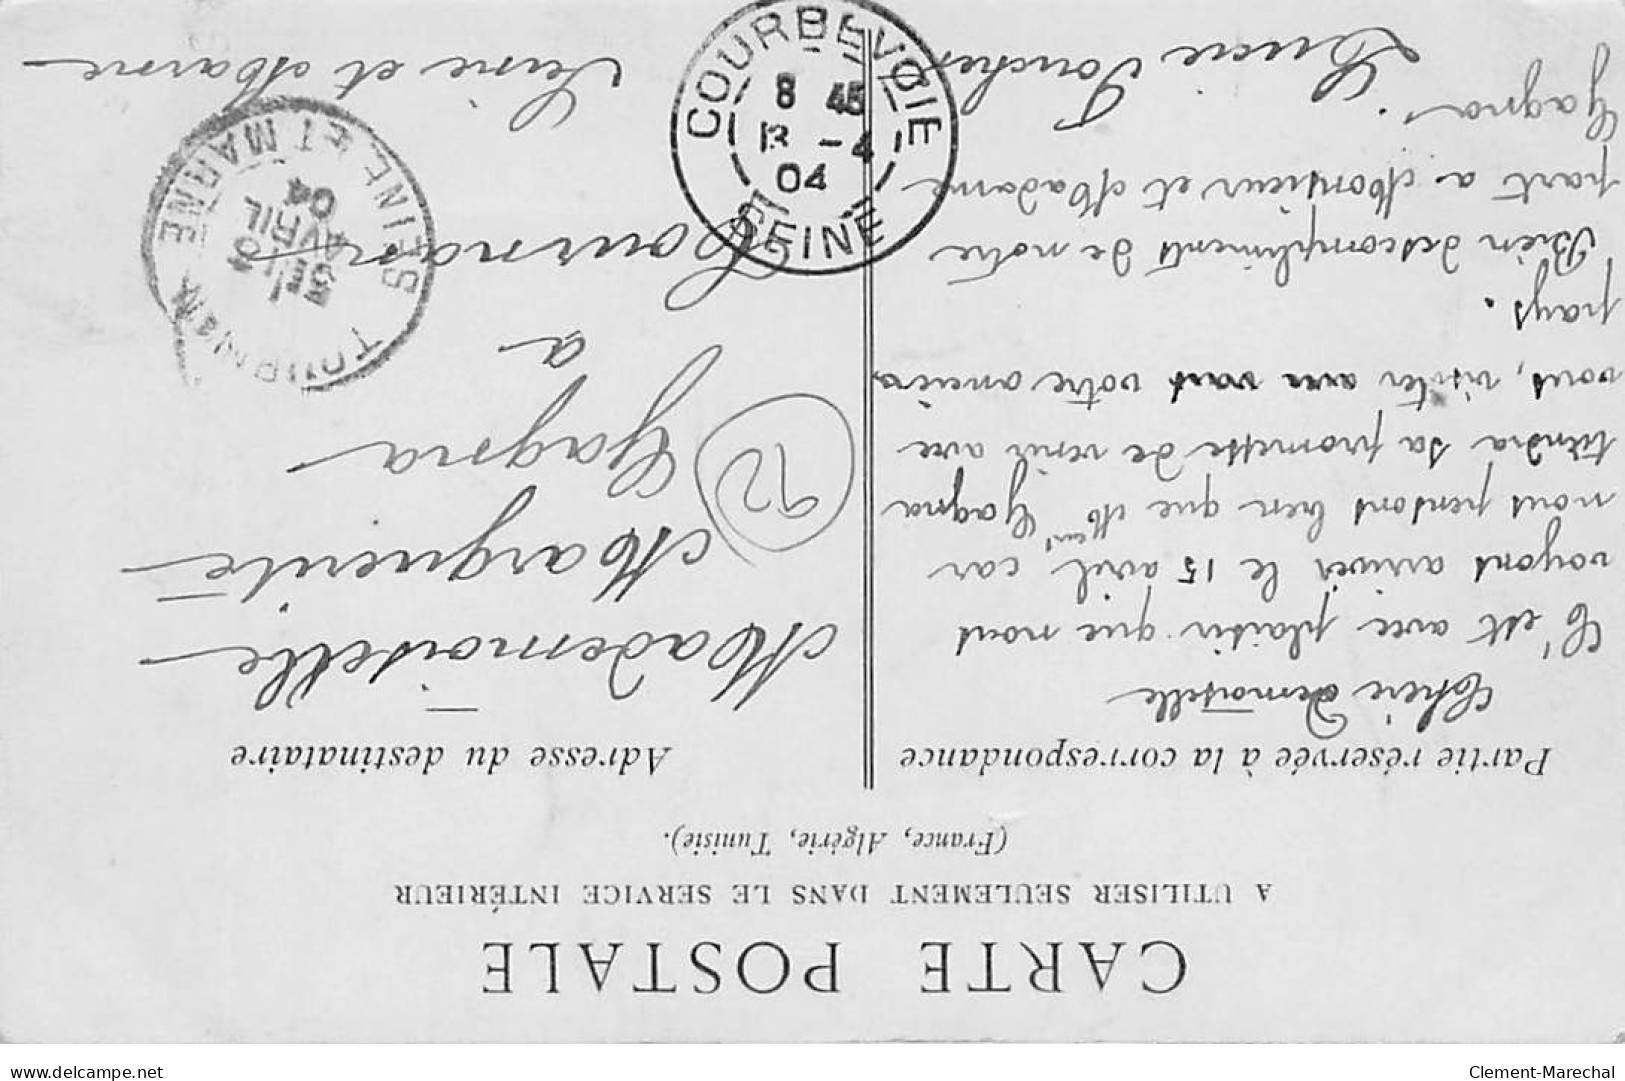 CARTE POSTALE
A UTILISER SEULEMENT DANS LE SERVICE INTÉRIEUR
(France, Algérie, Tunisie).
Partie réservée à la correspondance
Chère demoiselle
C'est avec plaisir que nous
voyons arriver le 15 avril car
nous pensons bien que Mr Gagna
tiendra sa promesse de venir avec
vous, visiter avec vous votre ancien
pays.
Bien des compliments de notre
part a Monsieur et Madame
Gagna.
Lucie
Adresse du destinataire
Mademoiselle
Marguerite
Gagna
a
Tournan
Seine et Marne
92
COURBEVOIE
8 45
13 -4
04
SEINE
TOURNAN
AVRIL
04
SEINE ET MARNE
www.delcampe.net
Clement-Marechal